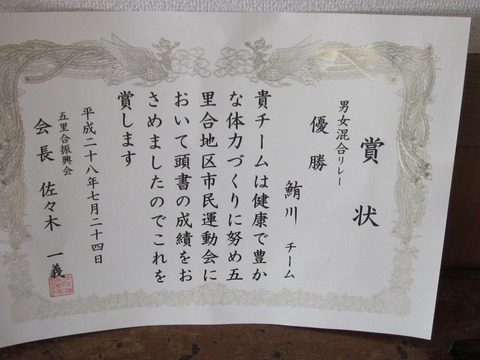 賞状
男女混合リレー
優勝
鮪川 チーム
貴チームは健康で豊か
な体力づくりに努め五
里合地区市民運動会に
おいて頭書の成績をお
さめましたのでこれを
賞します
平成二十八年七月二十四日
五里合振興会
会長 佐々木 一義